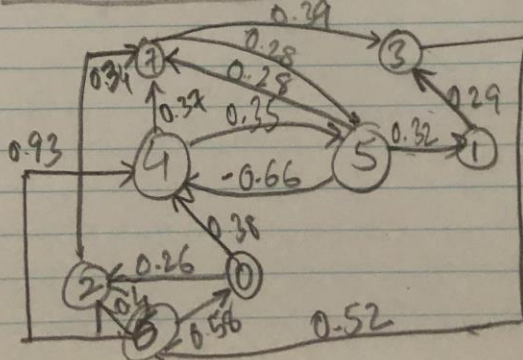 0.39
7
0.28
3
0.34
0.28
0.29
0.37
0.35
0.93
4
5
0.32
1
-0.66
0.38
2
0.26
0
0.4
6
0.58
0.52